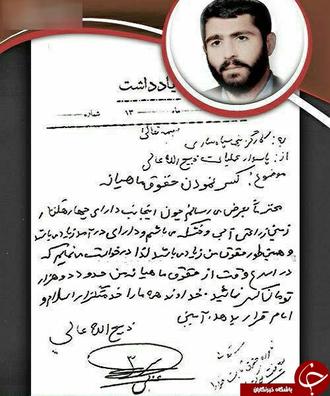 یادداشت
ماه ۱۳ شماره
بسمه تعالی
به: کارگزینی سپاه ساری
از: پاسدار عملیات ذبیح الله عالی
موضوع: کسر نمودن حقوق ماهیانه
محترماً بعرض می‌رسانم چون اینجانب دارای چهار هکتار
زمین زراعتی آبی و خشکه می‌باشم و دارای درآمد زیاد می‌باشد
و همینطور حقوق من زیاد می‌باشد لذا درخواست می‌نمایم که
در اسرع وقت از حقوق ماهیانه من حدود دو هزار
تومان کسر نمائید. خداوند همه ما را خدمتگزار اسلام و
امام قرار بدهد. آمین
ذبیح الله عالی
باشگاه خبرنگاران